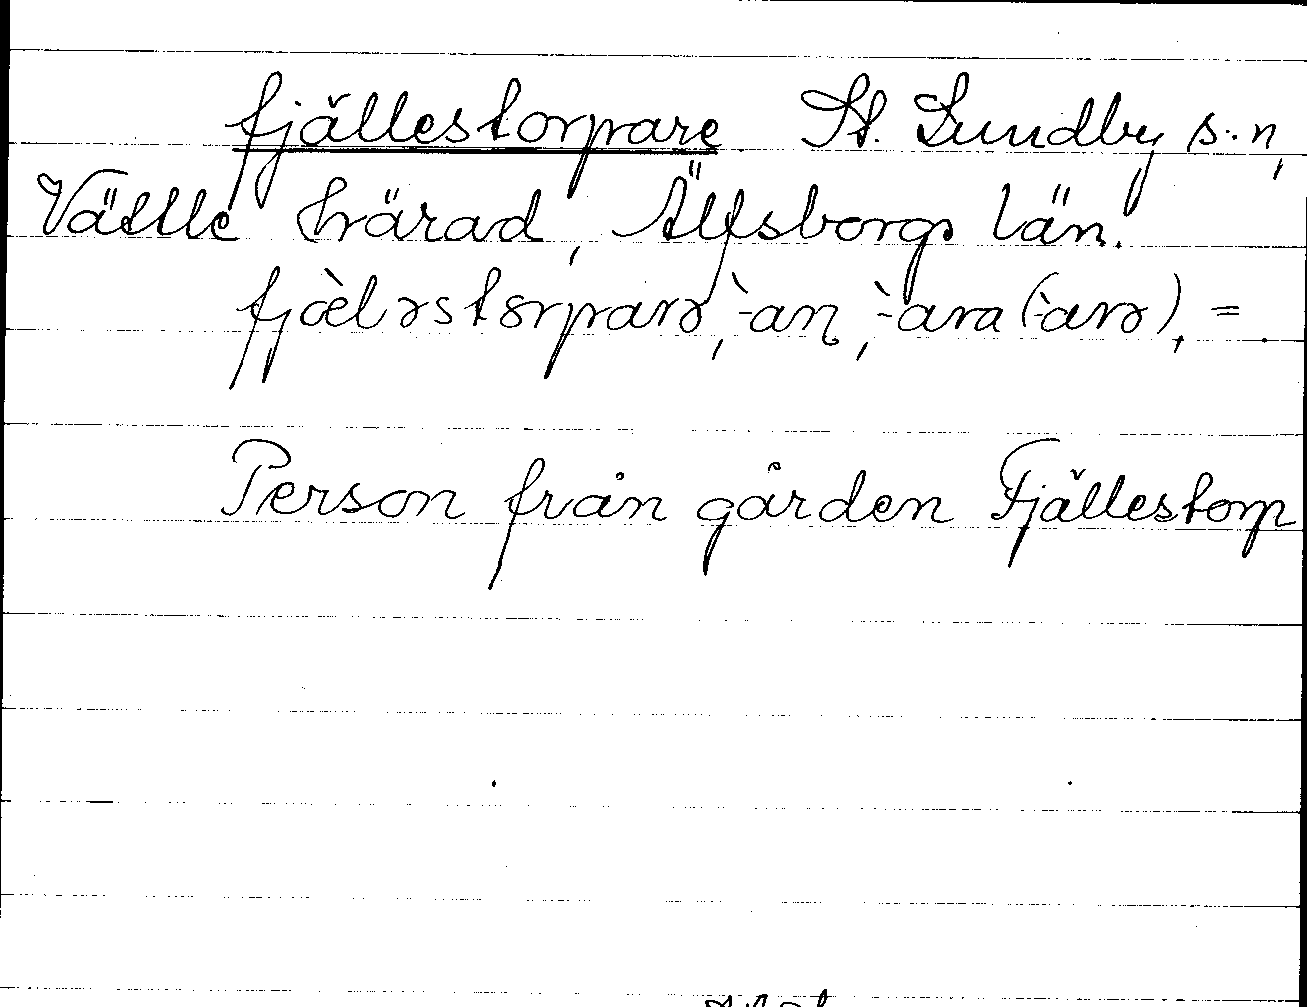 fjällestorpare St. Lundby s:n,
Vättle härad, Älfsborgs län.
fjæ̀ləstörparə, -̀an, -̀ara (-̀arə), =.
Person från gården Fjällestorp